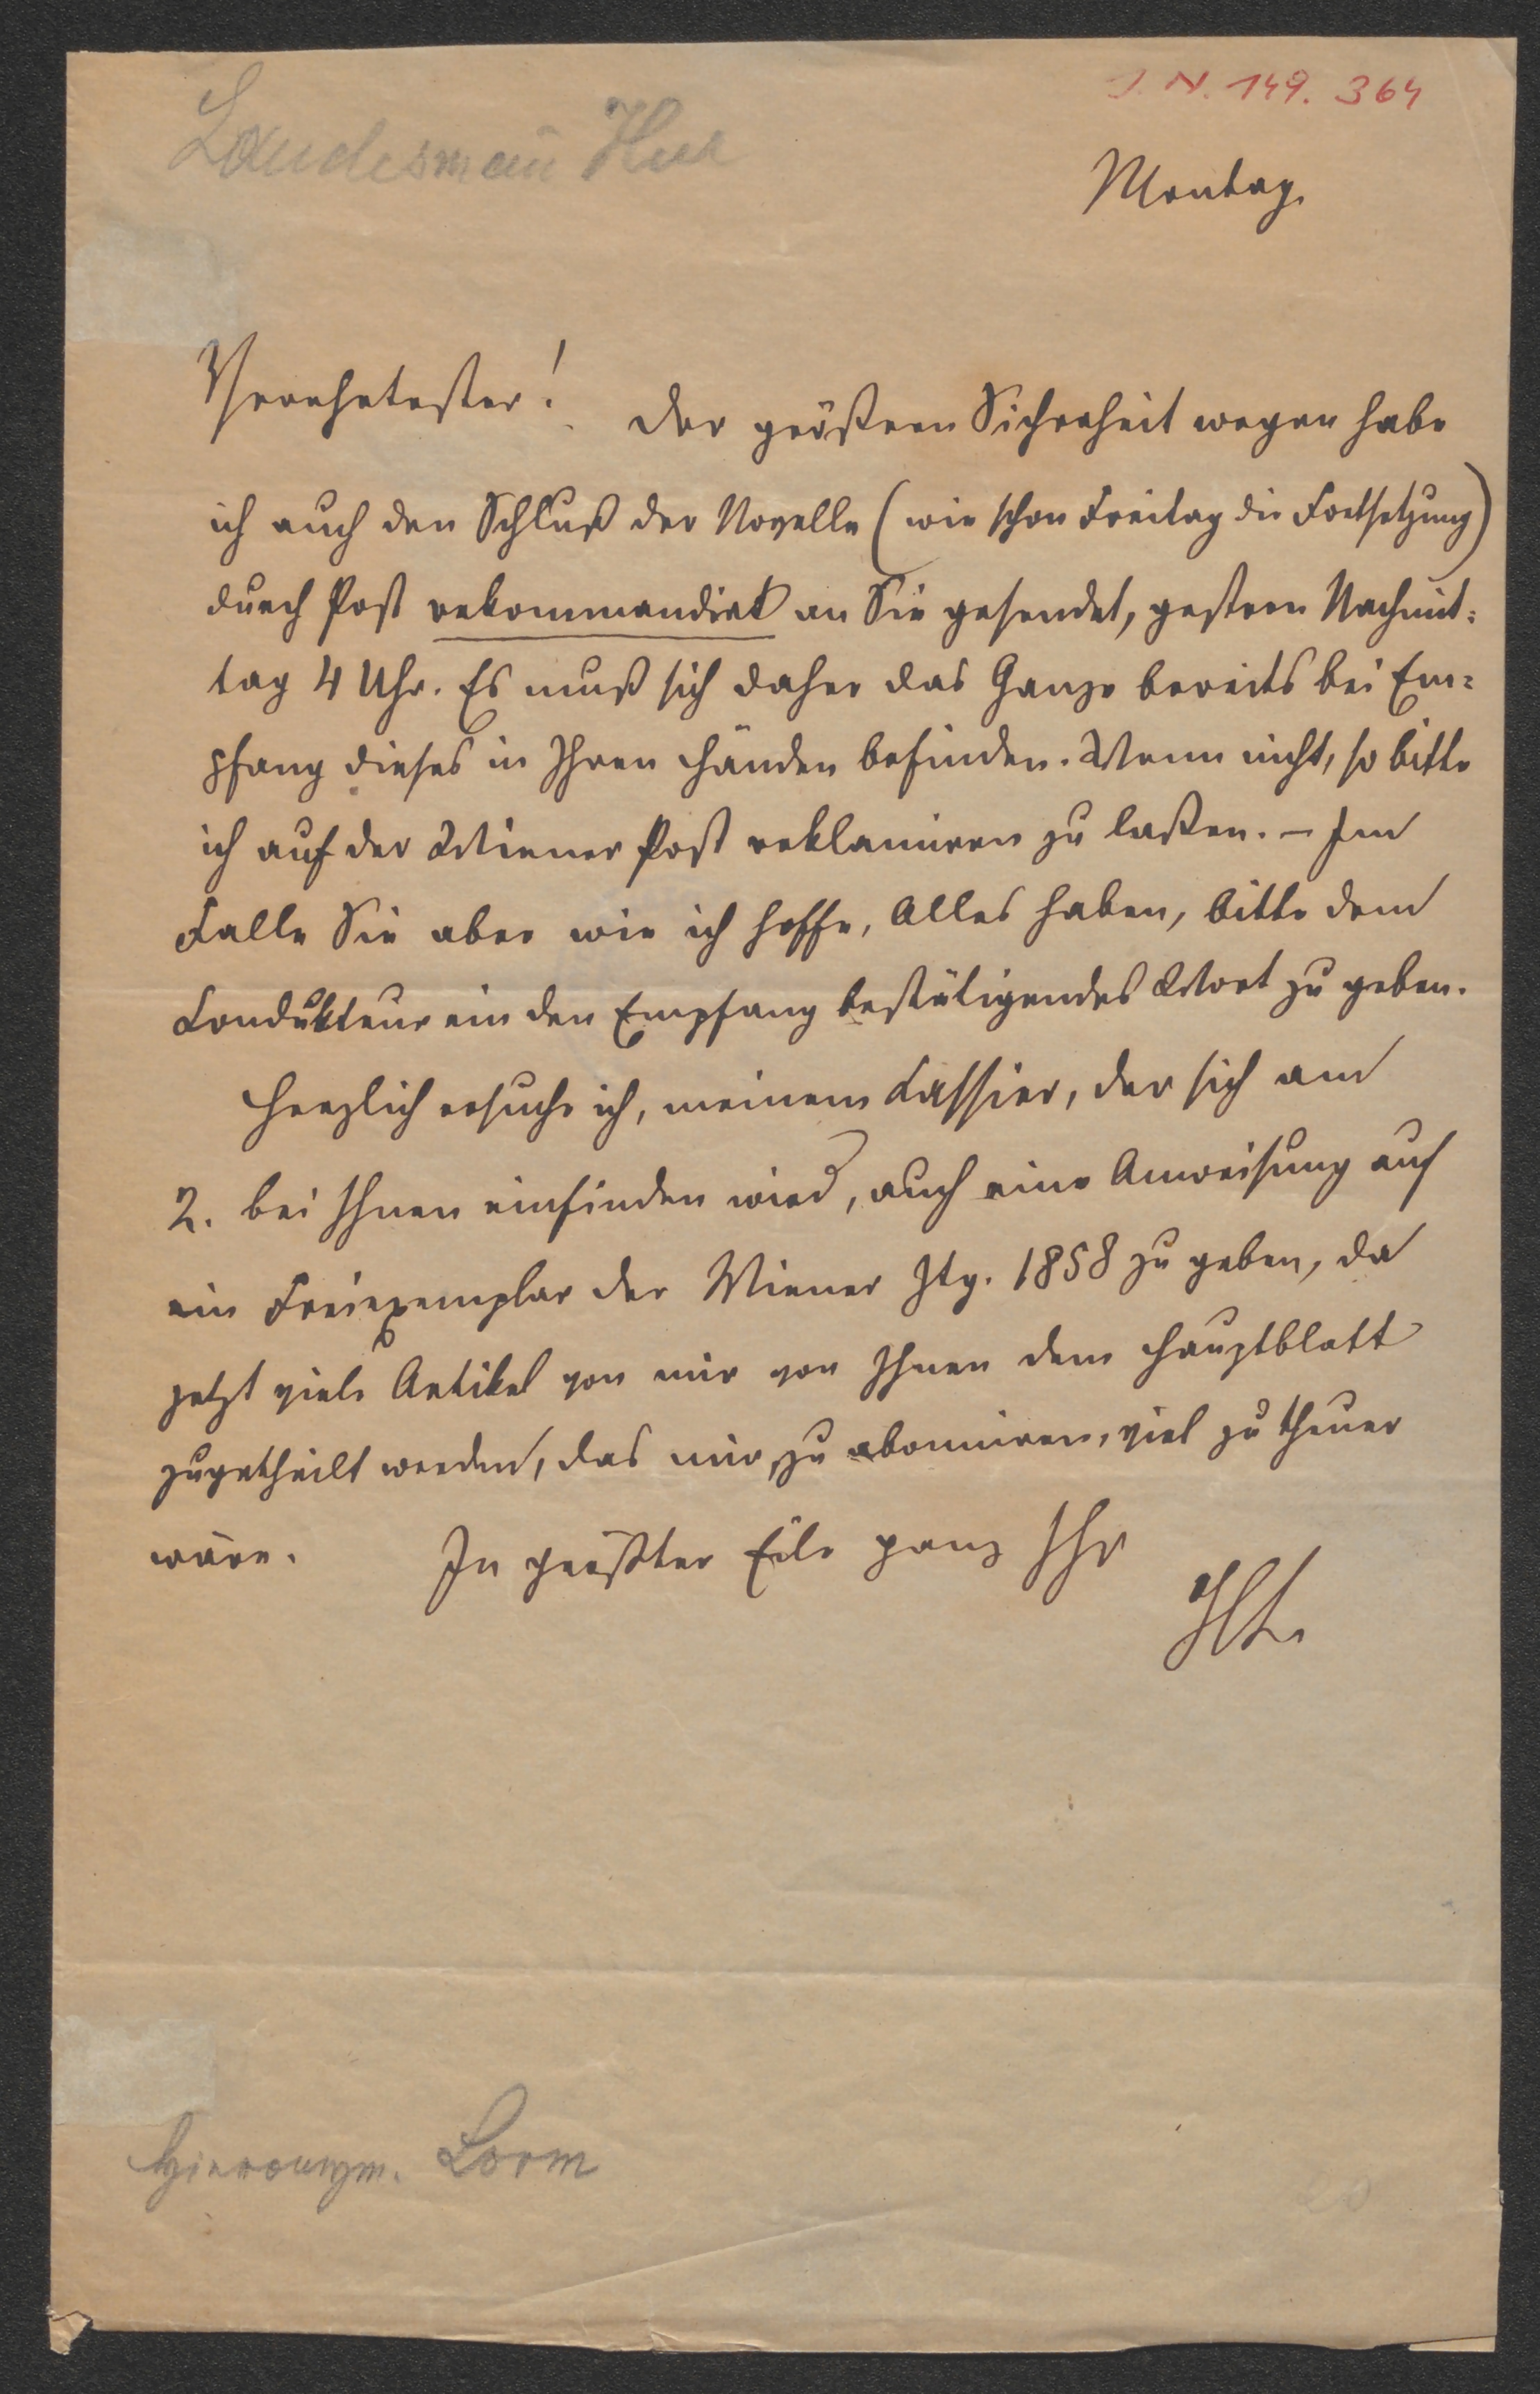 J. N. 149. 364
Landesman Hier
Montag.
Verehrtester!
Der größern Sicherheit wegen habe
ich auch den Schluß der Novelle (wie schon Freitag die Fortsetzung)
durch Post rekommandirt an Sie gesendet, gestern Nachmit-
tag 4 Uhr. Es muß sich daher das Ganze bereits bei Em-
pfang dieses in Ihren Händen befinden. Wenn nicht, so bitte
ich auf der Wiener Post reklamiren zu laßen. – Im
Falle Sie aber wie ich hoffe, Alles haben, bitte dem
Condukteur ein den Empfang bestätigendes Wort zu geben.
Herzlich ersuche ich, meinem Cassier, der sich am
2. bei Ihnen einfinden wird, auch eine Anweisung auf
ein Freiexemplar der Wiener Ztg. 1858 zu geben, da
jetzt viele Artikel von mir von Ihnen dem Hauptblatt
zugetheilt werden, das mir, zu abonniren, viel zu theuer
wäre.
In größter Eile ganz Ihr
HL.
Hieronym. Lorm